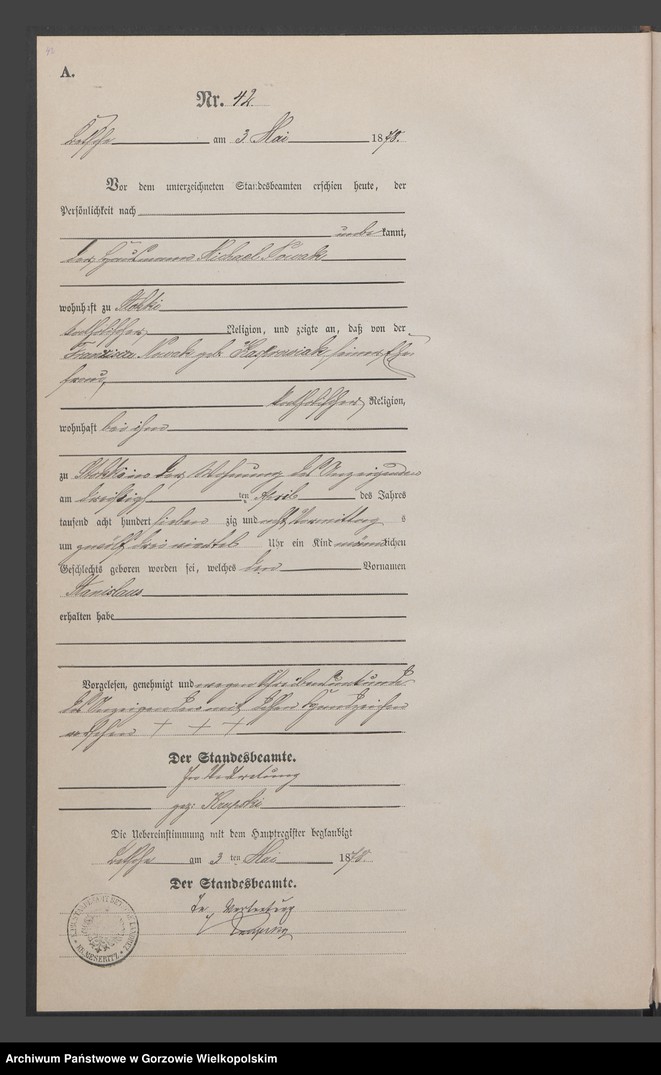 A.
Nr. 42.
Betsche am 3 Mai 1878.
Vor dem unterzeichneten Standesbeamten erschien heute, der
Persönlichkeit nach
unbekannt,
der Hausmann Michael Nowak
wohnhaft zu Stokki
katholischer Religion, und zeigte an, daß von der
Franziska Nowak geb. Kasprowiak seiner Ehe
frau,
katholischer Religion,
wohnhaft bei ihm
zu Stokki in der Wohnung des Anzeigenden
am dreißigsten April des Jahres
tausend acht hundert siebenzig und acht Vormittags
um zwölf drei viertel Uhr ein Kind männlichen
Geschlechts geboren worden sei, welches den Vornamen
Stanislaus
erhalten habe
Vorgelesen, genehmigt und wegen Schreibensunkunde
des Anzeigenden mit dessen Handzeichen
versehen + + +
Der Standesbeamte.
In Vertretung
gez: Krupski
Die Uebereinstimmung mit dem Hauptregister beglaubigt
Betsche am 3 ten Mai 1878.
Der Standesbeamte.
In Vertretung
KR. MESERITZ
Archiwum Państwowe w Gorzowie Wielkopolskim